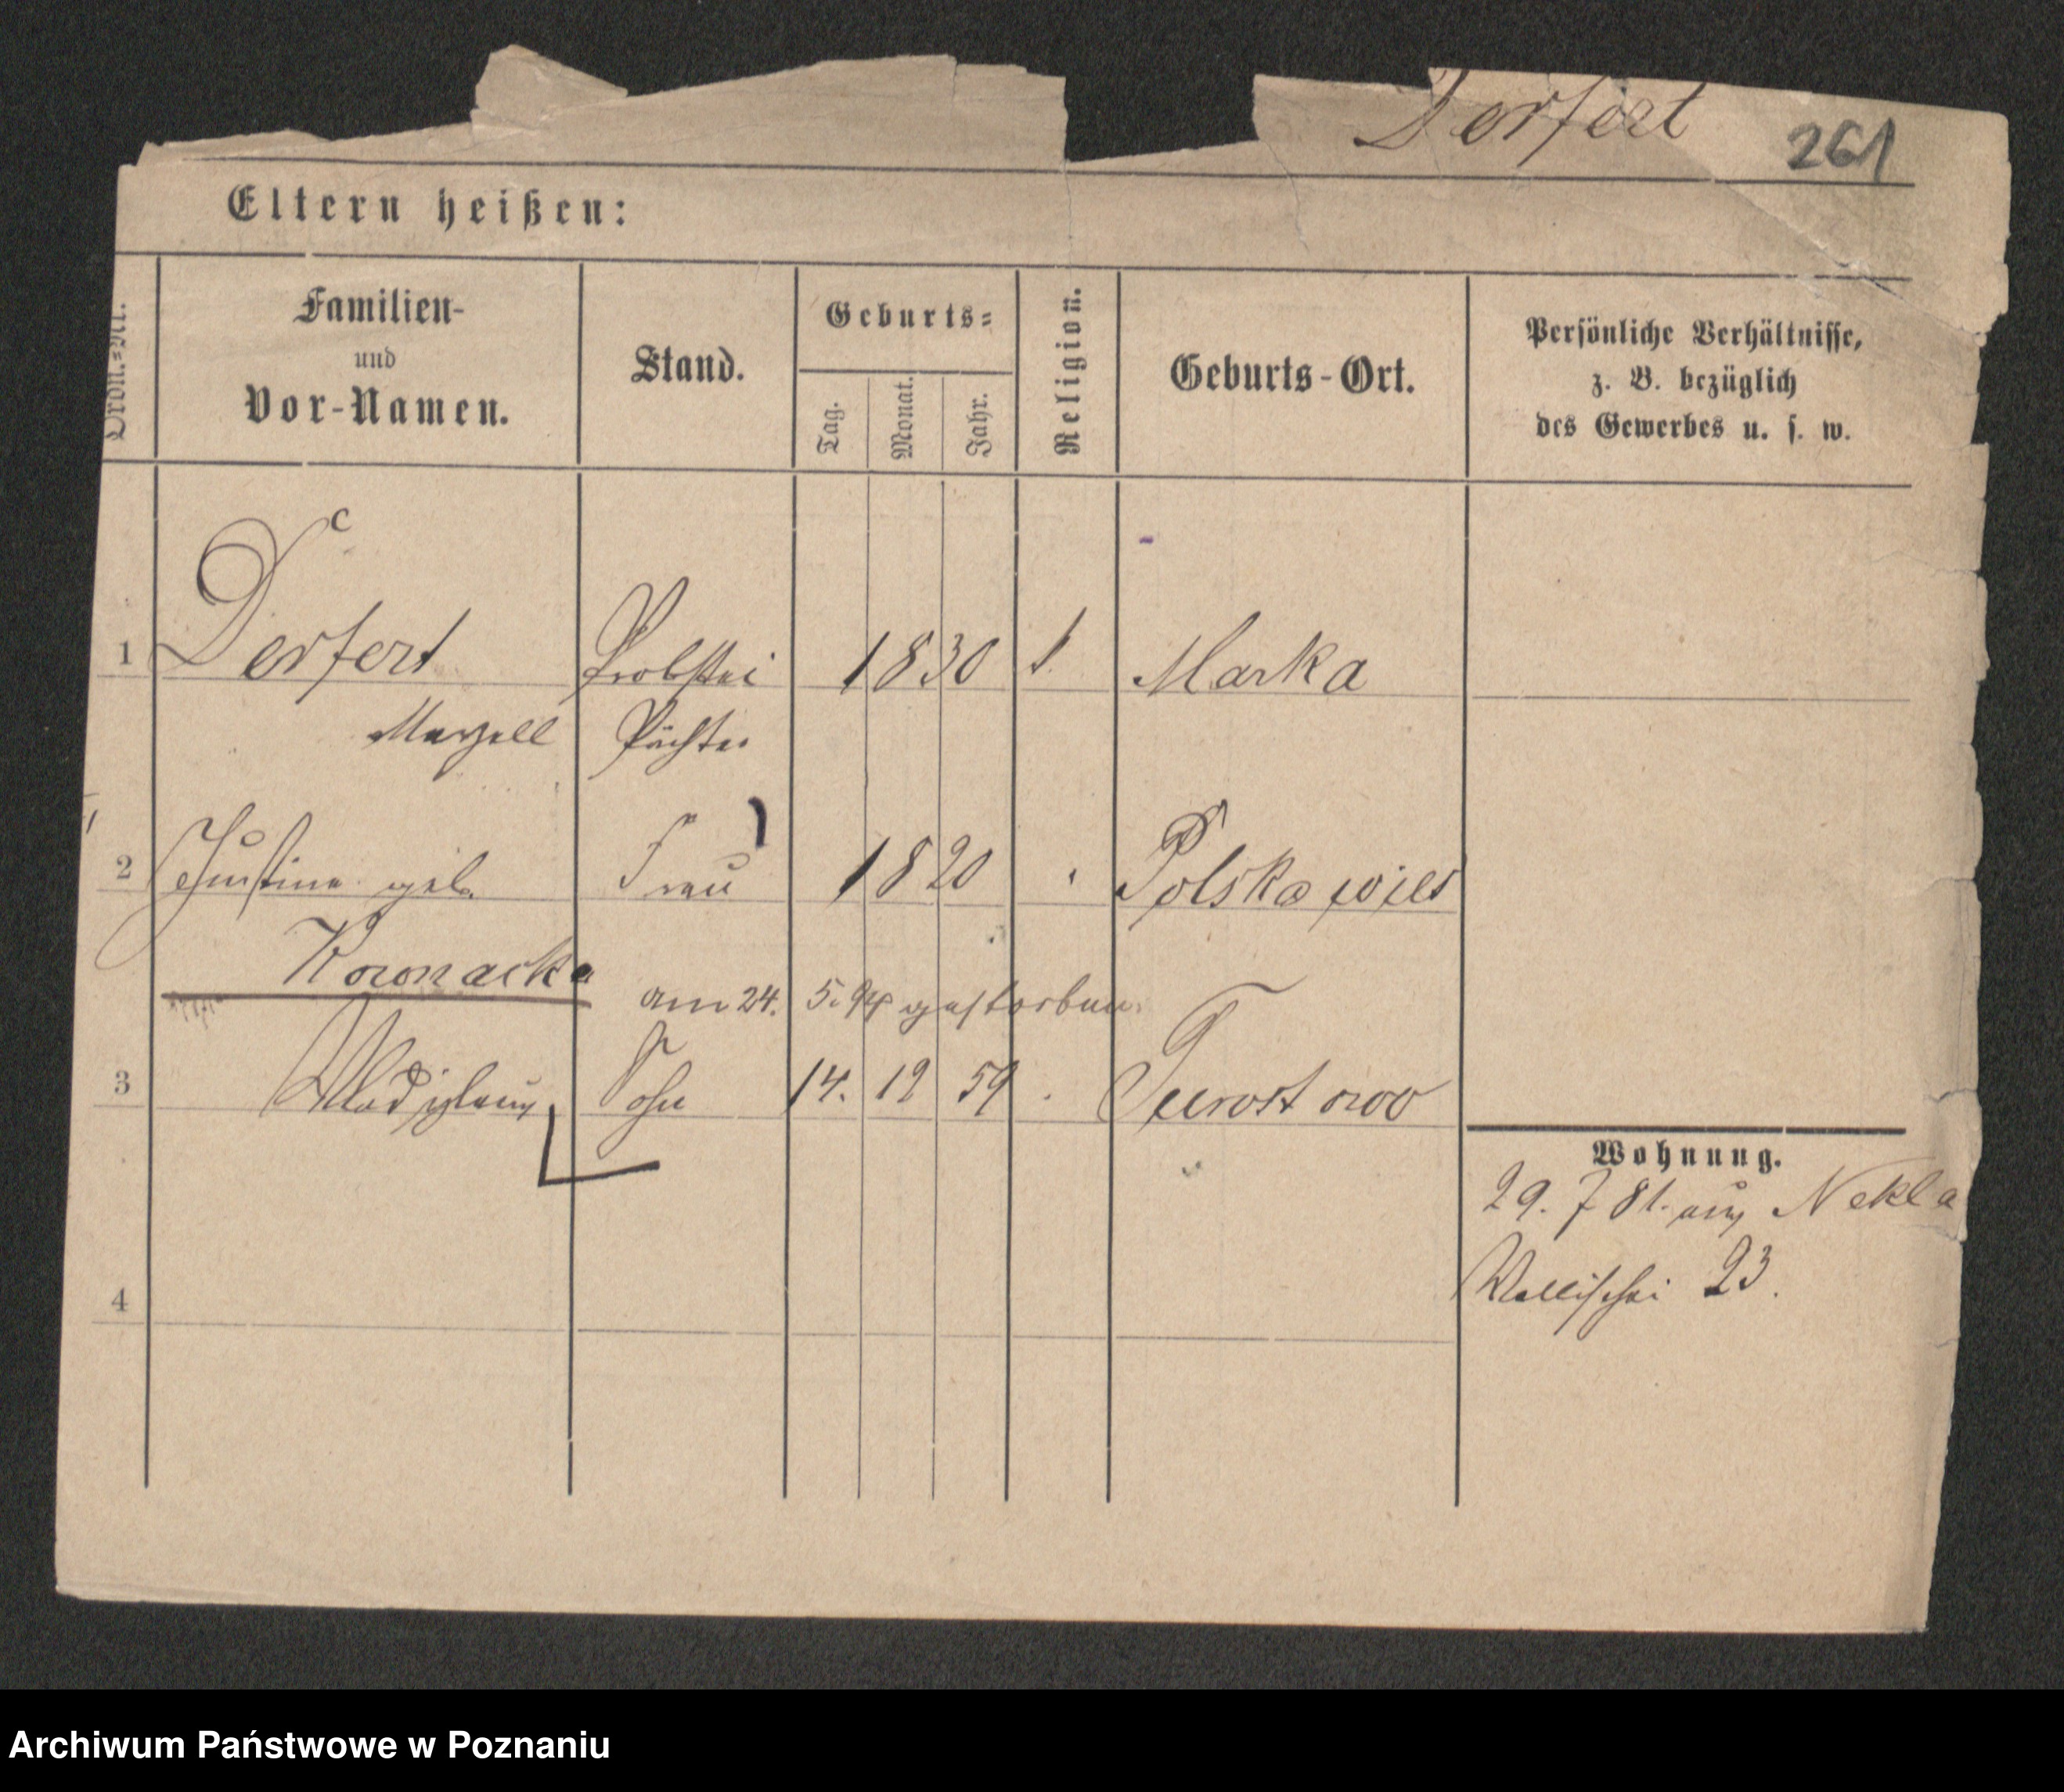 Derfert 261
Eltern heißen:
Ordn.=Nr.
Familien-
und
Vor-Namen.
Stand.
Geburts=
Tag.
Monat.
Jahr.
Religion.
Geburts-Ort.
Persönliche Verhältnisse,
z. B. bezüglich
des Gewerbes u. s. w.
1 Derfert Probstei 1830 k. Marka
Marzell Pächter
2 Justine geb. Frau 1820 Polskawies
Kornacka
am 24. 5. 94 gestorben.
3 Wladislaus Sohn 14. 12 59
Wohnung.
29. 7 81. aus Nekla
Wallischei 23.
4
Archiwum Państwowe w Poznaniu